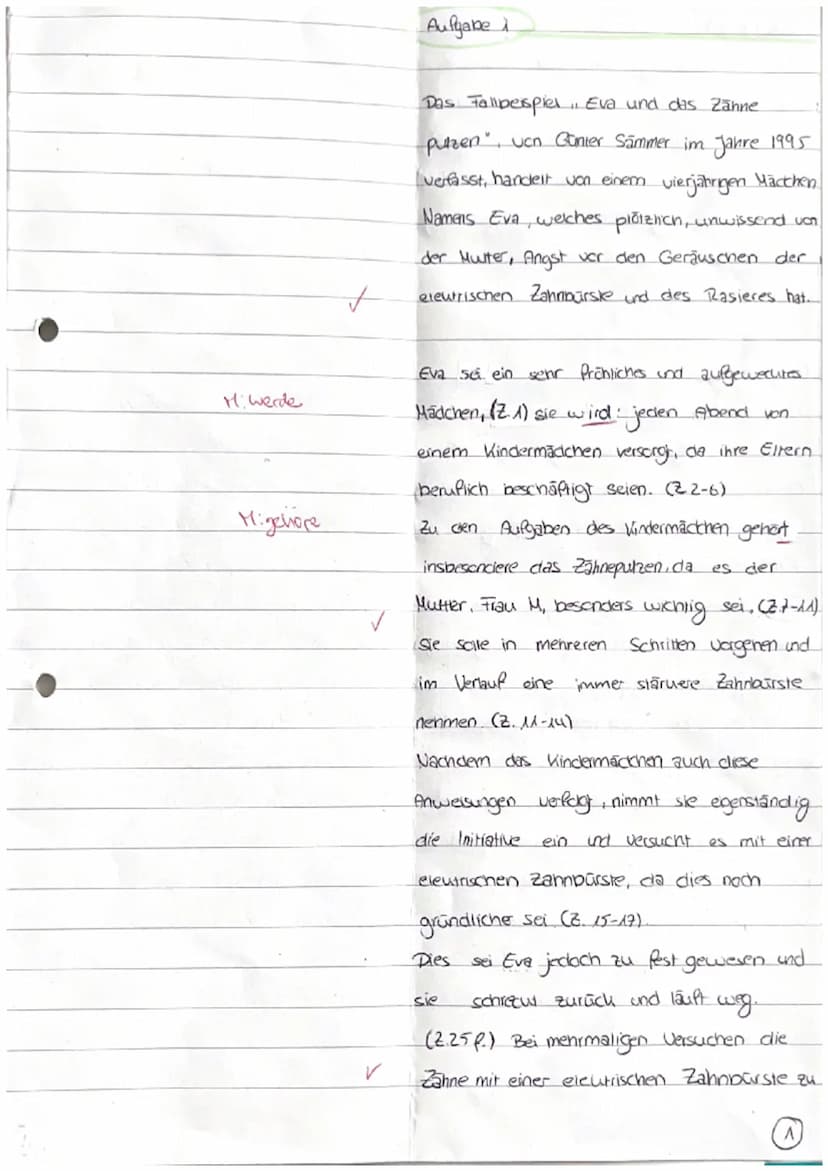 Aufgabe 1
Das Fallbeispiel „Eva und das Zähne
putzen", von Günter Sämmer im Jahre 1995
verfasst, handelt von einem vierjährigen Mädchen
Namens Eva, welches plötzlich, unwissend von
der Mutter, Angst vor den Geräuschen der
elektrischen Zahnbürste und des Rasieres hat.
Eva sei ein sehr fröhliches und aufgewecktes
M: werde
Mädchen, (Z.1) sie wird jeden Abend von
einem Kindermädchen versorgt, da ihre Eltern
beruflich beschäftigt seien. (Z.2-6)
M: gehöre
Zu den Aufgaben des Kindermädchen gehört
insbesondere das Zähneputzen, da es der
Mutter, Frau M, besonders wichtig sei. (Z.7-11)
Sie solle in mehreren Schritten vorgehen und
im Verlauf eine immer stärkere Zahnbürste
nehmen. (Z. 11-14)
Nachdem das Kindermädchen auch diese
Anweisungen verfolgt, nimmt sie eigenständig
die Initiative ein und versucht es mit einer
elektrischen Zahnbürste, da dies noch
gründlicher sei (Z. 15-17).
Dies sei Eva jedoch zu fest gewesen und
sie schreckt zurück und läuft weg.
(Z.25 f.) Bei mehrmaligen Versuchen die
Zähne mit einer elektrischen Zahnbürste zu
1